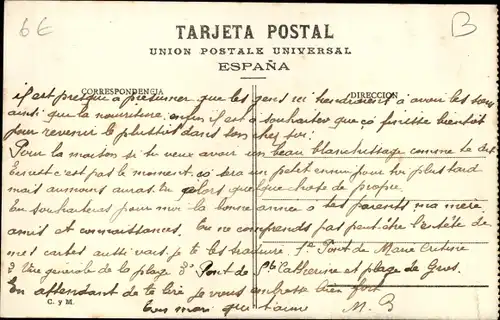 6€
B
TARJETA POSTAL
UNION POSTALE UNIVERSAL
ESPAÑA
CORRESPONDENCIA
DIRECCION
il est presque a présumer que les gens ici tiendraient à avoir les sous
ainsi que la nourriture enfin il est à souhaiter que ça finisse bientôt
pour revenir le plustôt dans son chez soi.
Pour la maison si tu veux avoir un beau blanchissage comme te dit
c'est pas le moment, ce sera un petit ennui pour toi plus tard
mais au moins auras-tu alors quelque chose de propre.
Tu souhaiteras pour moi la bonne année à tes parents ma mère
amis et connaissances. Tu ne comprends pas peut être l'entête de
mes cartes aussi vais je te les traduire. 1e Pont de Marie Cristine
2 Vue générale de la plage 3e Pont de Ste Catherine et plage de Gros.
En attendant de te lire je vous embrasse bien fort
Ton mari qui t'aime M. B
C. y M.